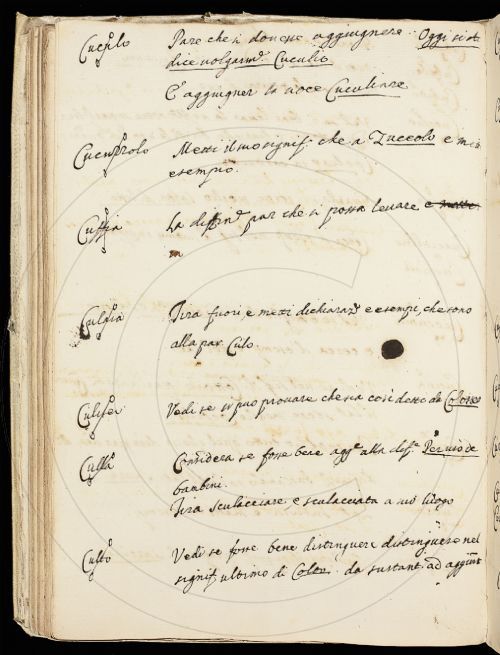 Cuculo Pare che si dovesse aggiugnere. Oggi si
dice volgarm.e Cuculio
E aggiugner la voce Cuculiare
Metti il suo signif. che a Zuccolo e
esempio.
Cuffia La diffin.e par che si possa levare e
Tira fuori, e metti dichiaraz.e e esempi, che sono
alla par. Culo.
Vedi se si può provare che sia così detto da
Culla Considera se fosse bene agg.e alla dif.e Per uso de
bambini.
Tira sculacciare, e sculacciata a suo luogo
Culto Vedi se fosse bene distinguere distinguere nel
signif. ultimo di Colto da sustant. ad